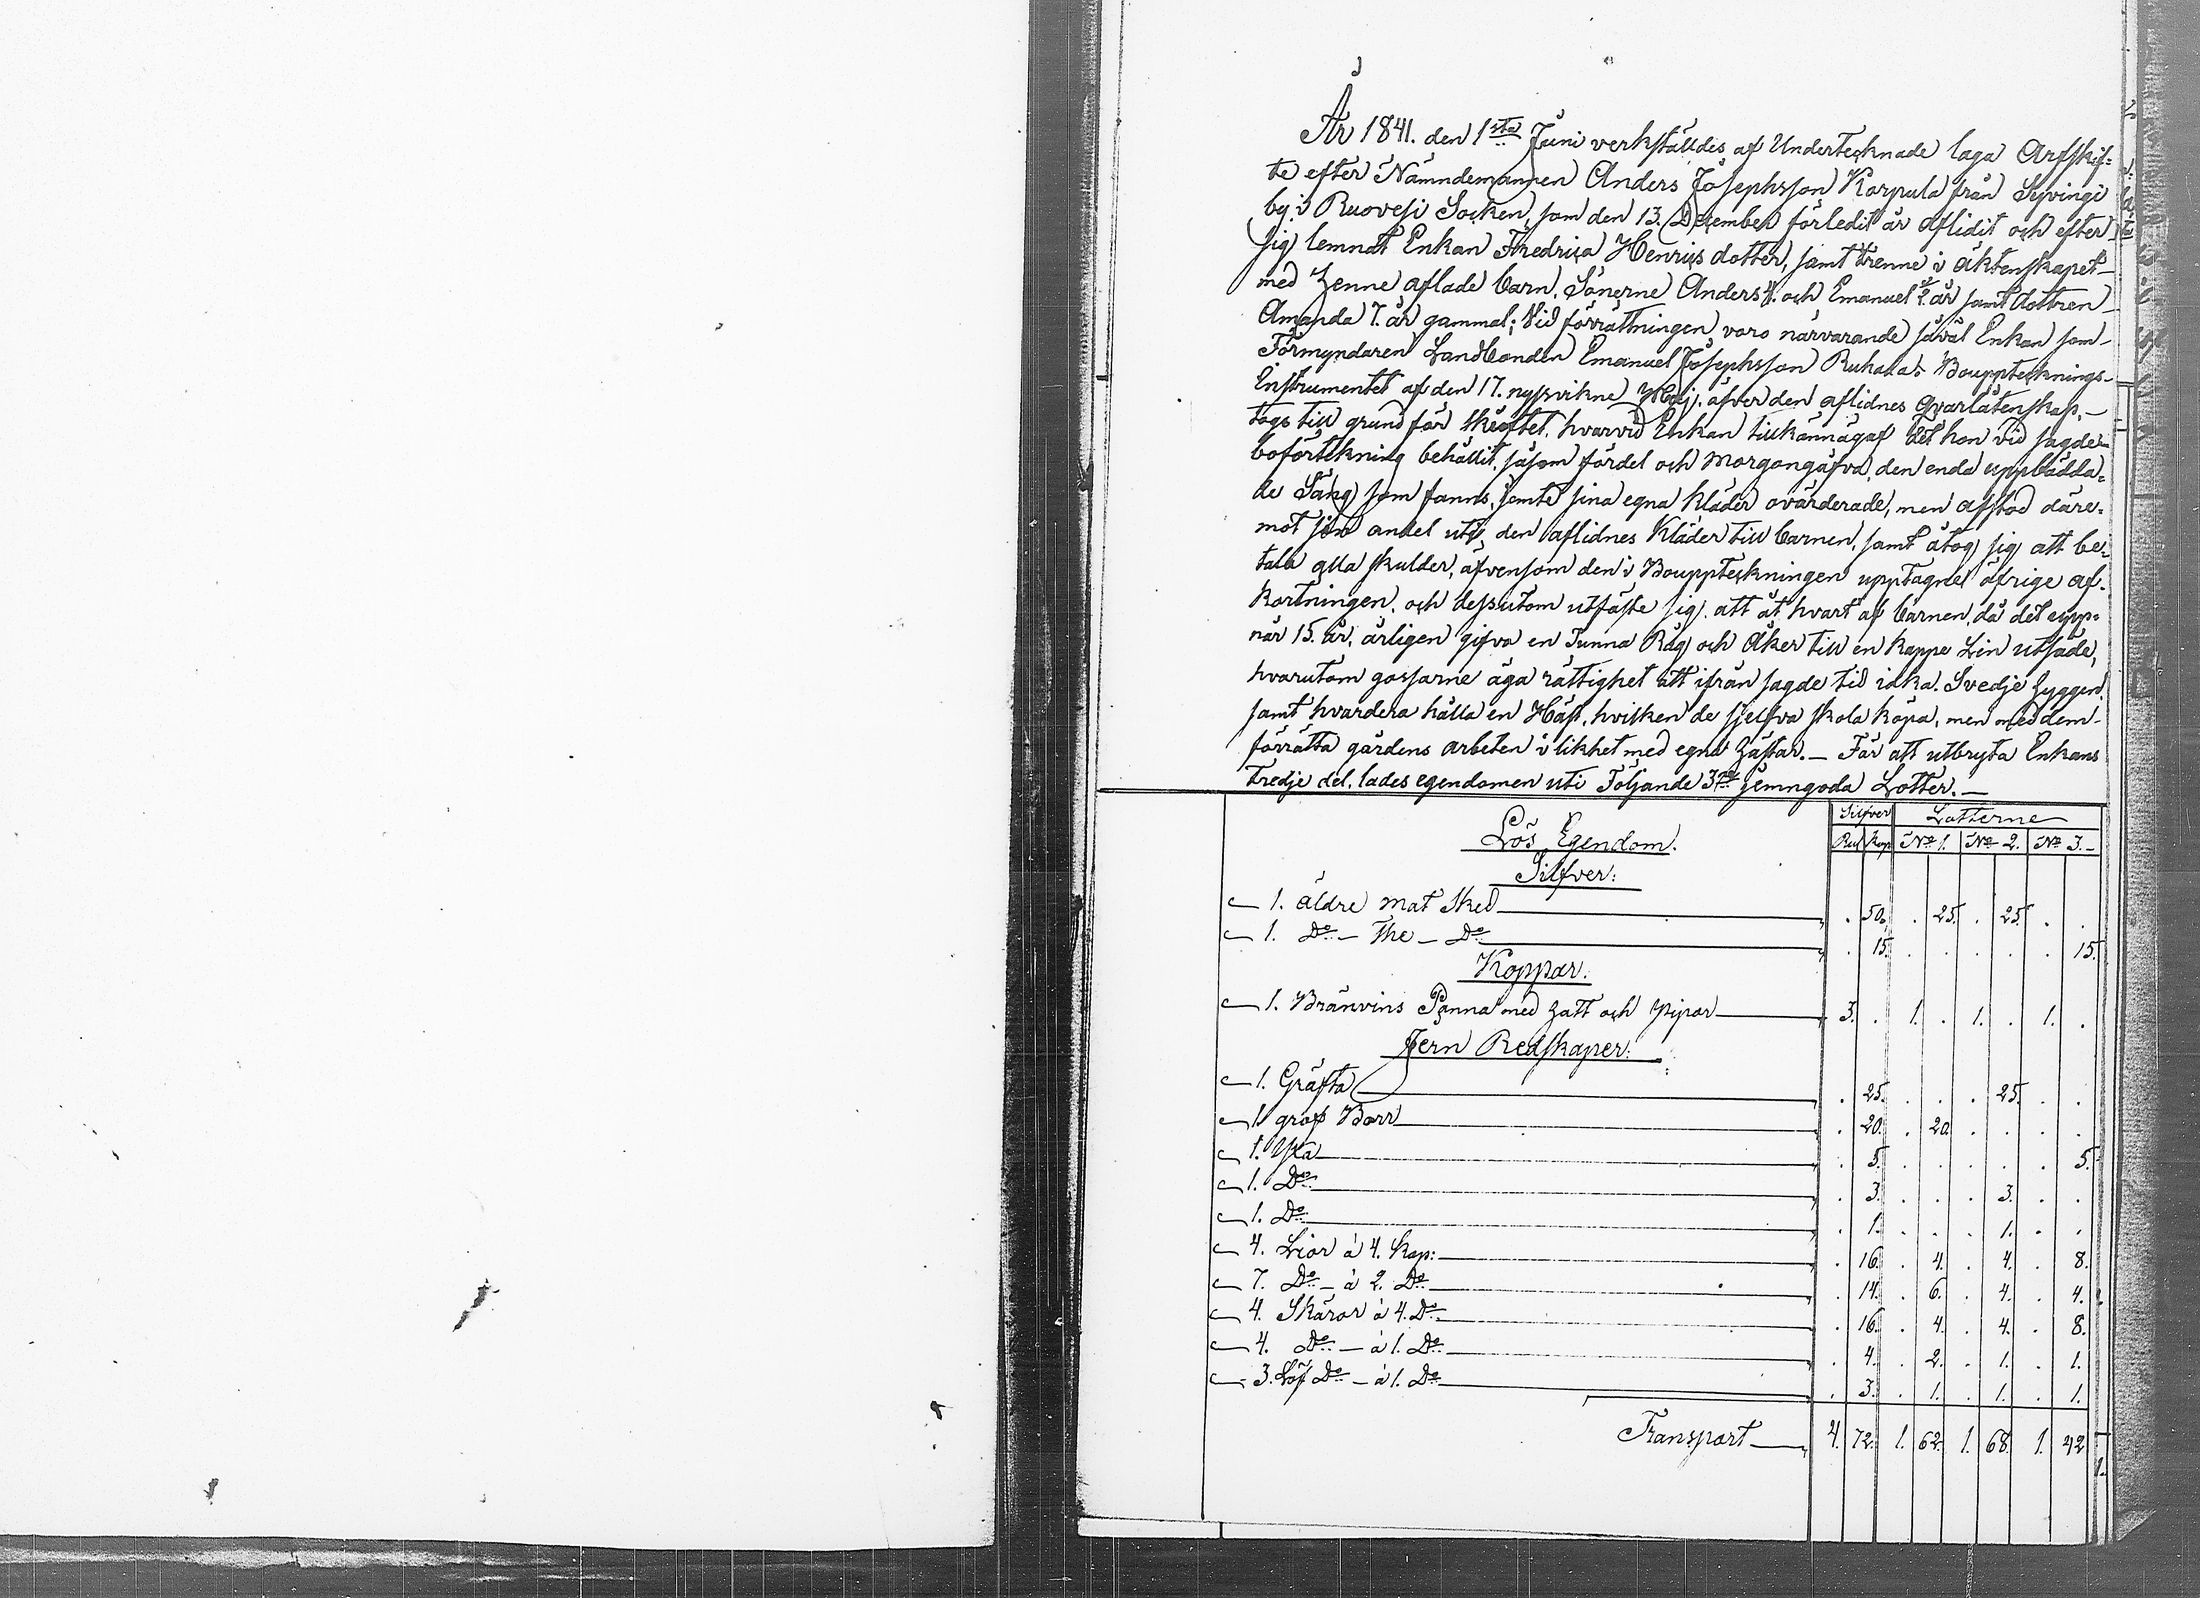 År 1841. den 1sta Juni verkställdes af Undertecknade laga Arfskif-
te efter Nämndemannen Anders Josephsson Korpula från Syvingi
by i Ruovesi Socken, som den 13. December förledit år aflidit och efter
sig lemnat Enkan Fredrica Henrics dotter, samt trenne i äktenskapet
med henne aflade barn, Sönerne Anders 4. och Emanuel 2 år samt dottren
Amanda 7. år gammal; Vid förrättningen voro närvarande såväl Enkan som
Förmyndaren Landbonden Emanuel Josephsson Ruhala. Bouppteknings-
Instrumentet af den 17. nyssvikne Maj. öfver den aflidnes qvarlåtenskap,
togs till grund för skiftet, hvarvid Enkan tillkännagaf det hon vid sagde
boförtekning behållit, såsom fördel och Morgongåfva, den enda uppbädda-
de Säng som fanns, jemte sina egna kläder ovärderade, men afstod däre-
mot sin andel uti den aflidnes Kläder till barnen, samt åtog sig att be-
tala alla skulder, äfvensom den i Bouppteckningen upptagne öfrige af-
kortningen, och dessutom utfäste sig, att åt hvart af barnen, då det upp-
når 15. år, årligen gifva en Tunna Råg och Åker till en kappe Lin utsäde,
hvarutom gossarne äga rättighet att ifrån sagde tid idka Svedje hyggen,
samt hvardera hålla en Häst, hvilken de sjelfva skola köpa, men med dem
förrätta gårdens arbeten i likhet med egna hästar. — För att utbryta Enkans
tredje del, lades egendomen uti Följande 3ne jemngoda Lotter. —
Silfver Lotterne
Lös Egendom. Rub Kop No 1. No 2. No 3. —
Silfver:
1. äldre mat Sked . 50. . 25. . 25. . .
1. Do — The — Do . 15. . . . . . 15.
Koppar:
1. Bränvins Panna med hatt och Pipor 3. . 1. . 1. . 1. .
Jern Redskaper:
1. Gräfta . 25. . . . 25. . .
1. grof Borr . 20. . 20. . . . .
1. Yxa . 5. . . . . . 5.
1. Do . 3. . . . 3. . .
1. Do . 1. . . . 1. . .
4. Liar à 4. Kop: . 16. . 4. . 4. . 8.
7. Do — à 2. Do . 14. . 6. . 4. . 4.
4. Skäror à 4. Do . 16. . 4. . 4. . 8.
4. Do — à 1. Do . 4. . 2. . 1. . 1.
3. Löf Do — à 1. Do . 3. . 1. . 1. . 1.
Transport 4. 72. 1. 62. 1. 68. 1. 42.